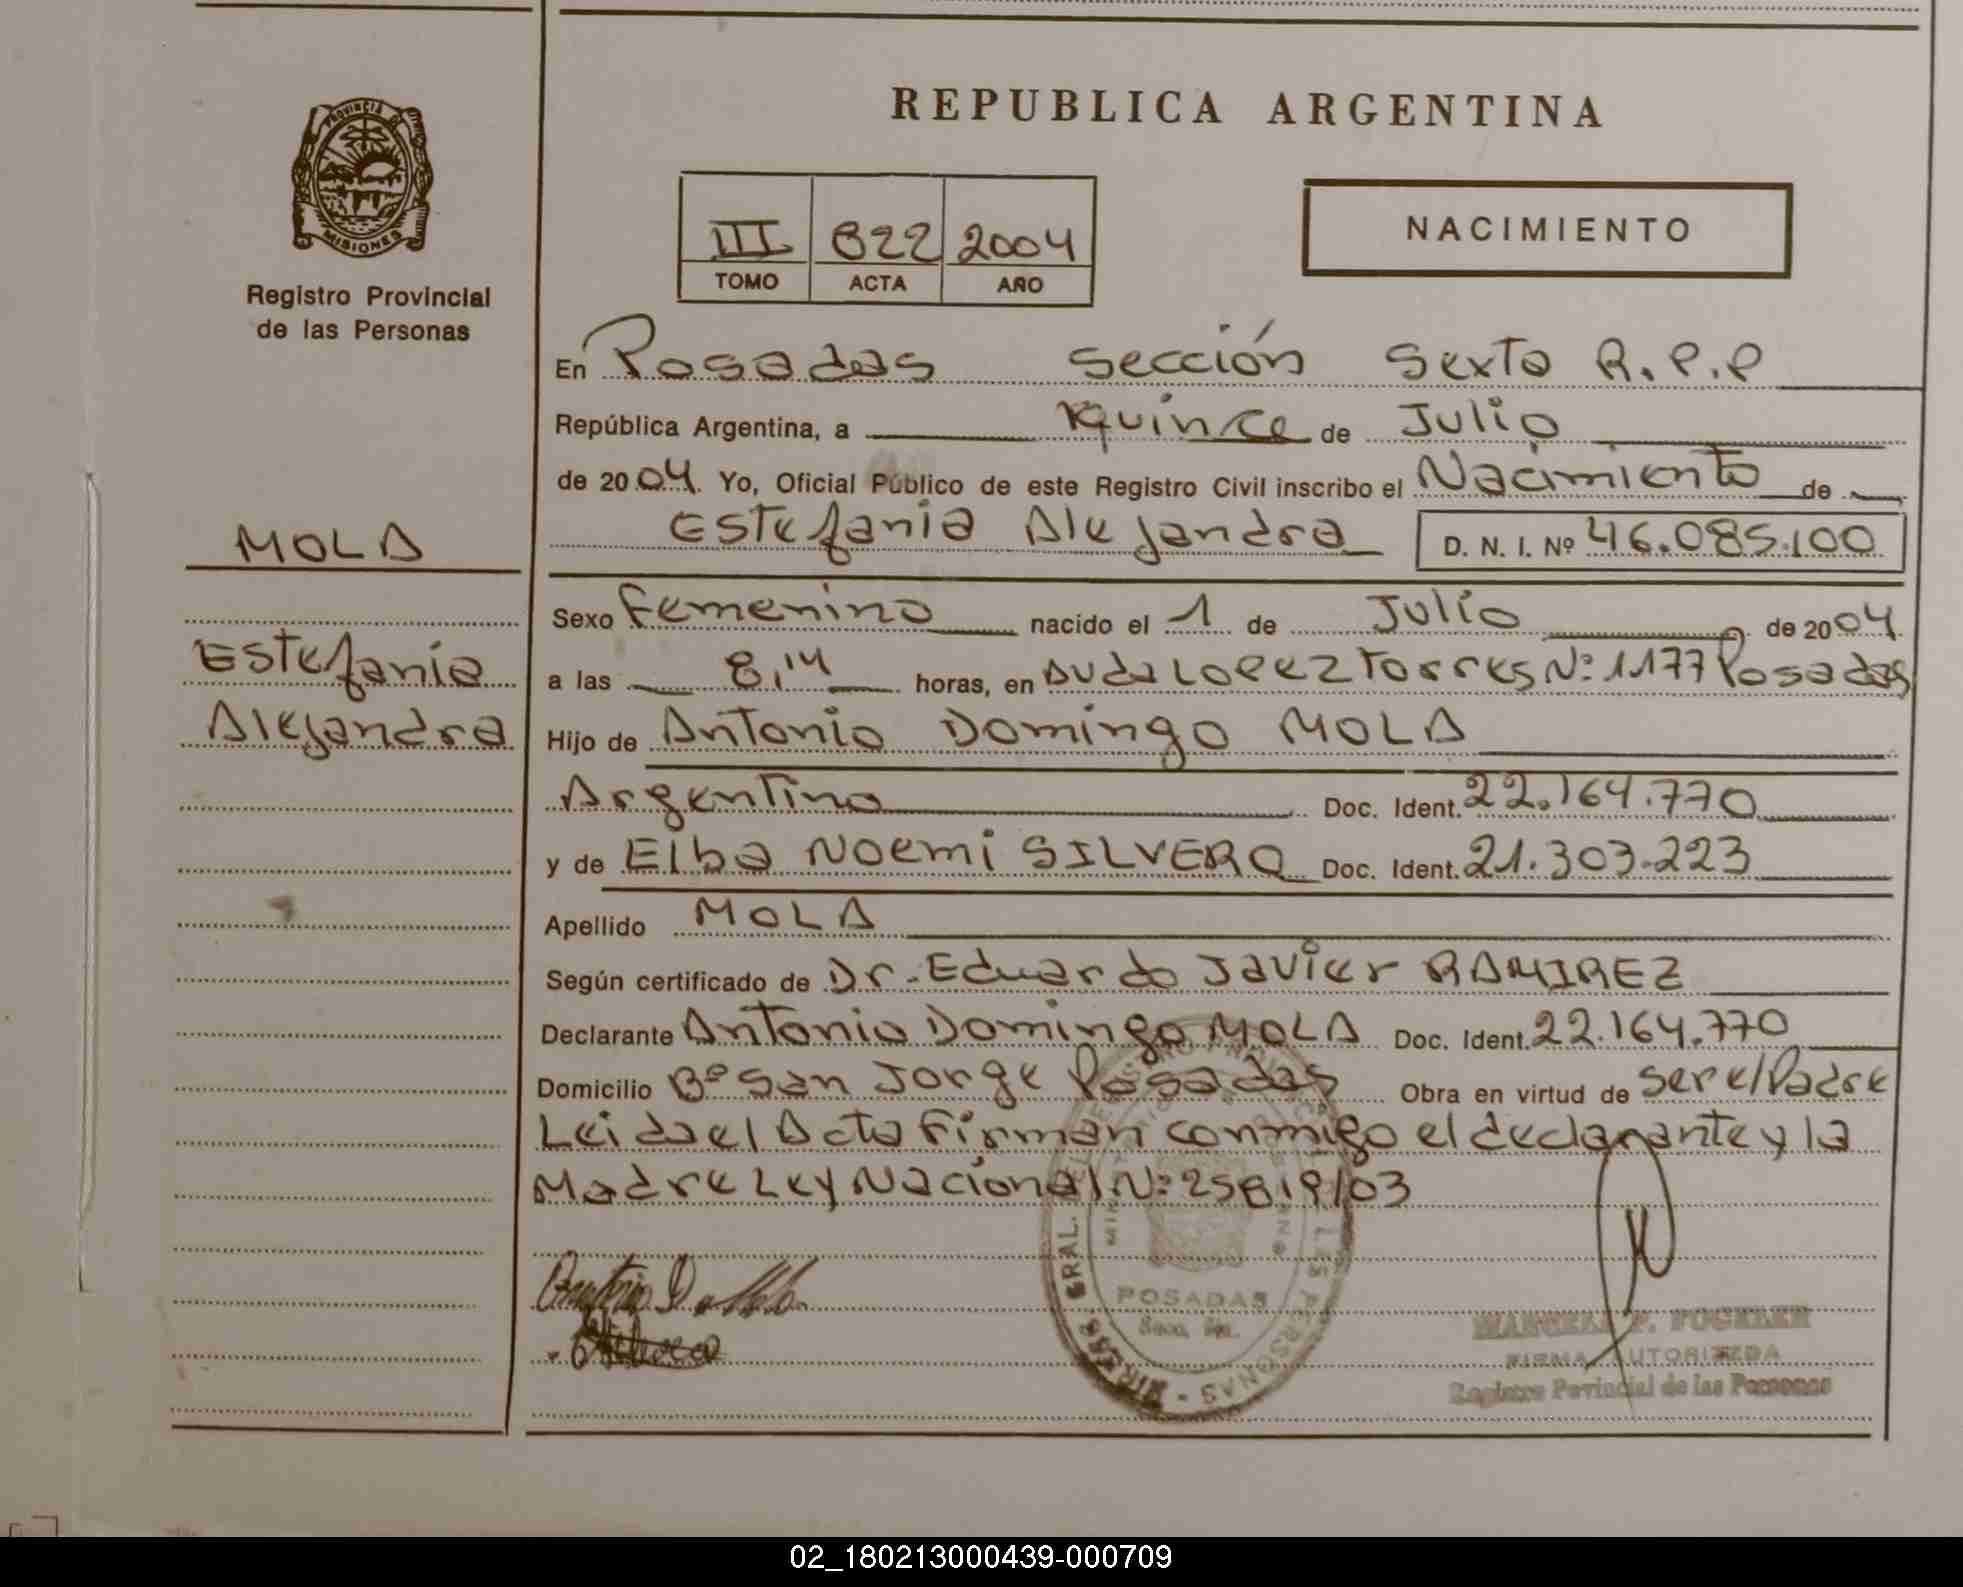 REPUBLICA ARGENTINA
PROVINCIA DE
MISIONES
Registro Provincial
de las Personas
III 822 2004
TOMO ACTA AÑO
NACIMIENTO
En Posadas Sección Sexta R.P.P
República Argentina, a quince de Julio
de 2004. Yo, Oficial Público de este Registro Civil inscribo el Nacimiento de
Estefania Alejandra D. N. I. Nº 46.085.100
MOLA
Estefania
Alejandra
Sexo Femenino nacido el 1 de Julio de 2004
a las 8,14 horas, en Avda Lopez Torres Nº 1177 Posadas
Hijo de Antonio Domingo MOLA
Argentino Doc. Ident. 22.164.770
y de Elba Noemi SILVERO Doc. Ident. 21.303.223
Apellido MOLA
Según certificado de Dr. Eduardo Javier RAMIREZ
Declarante Antonio Domingo MOLA Doc. Ident. 22.164.770
Domicilio Bº San Jorge Posadas Obra en virtud de ser el Padre
Leida el Acta Firman conmigo el declarante y la
Madre Ley Nacional Nº 25819/03
POSADAS
FIRMA AUTORIZADA
Registro Provincial de las Personas
02_180213000439-000709